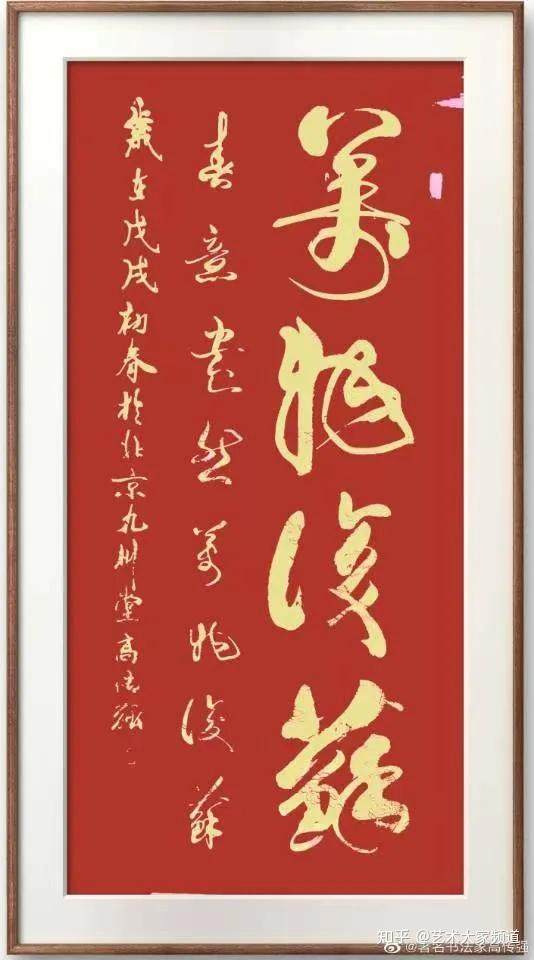 萬物復蘇
春意盎然萬物復蘇
歲在戊戌初春於北京九州堂高传强
知乎 @艺术大家频道
@著名书法家高传强